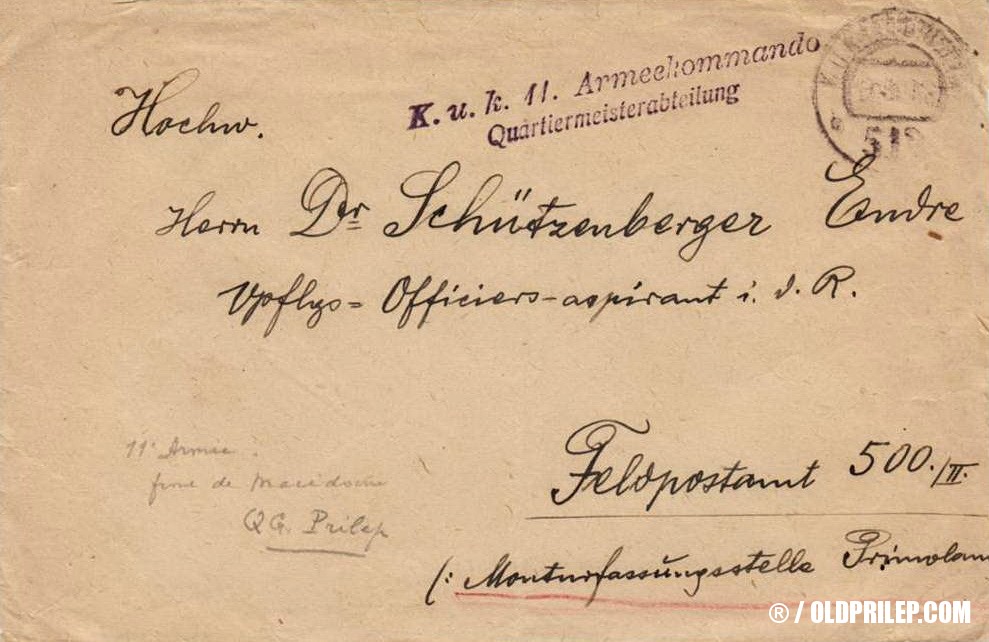 K. u. k. 11. Armeekommando
Quartiermeisterabteilung
Hochw.
Herrn Dr Schützenberger Endre
Vpflgs= Officiers-aspirant i. d. R.
Feldpostamt 500./III.
(: Monturfassungsstelle Primolano
11e Armée.
front de Macédoine
QG. Prilep
® / OLDPRILEP.COM